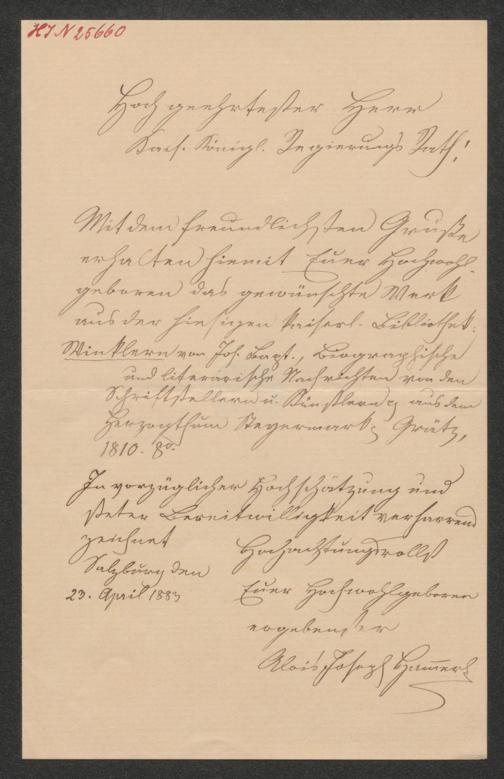 HIN 25660
Hoch geehrtester Herr
Kais. Königl. Regierungs Rath!
Mit dem freundlichsten Gruße
erhalten hiemit Euer Hochwohl-
geboren das gewünschte Werk
aus der hiesigen kaiserl. Bibliothek:
Winklern von Joh. Bapt., Biographische
und literarische Nachrichten von den
Schriftstellern u. Künstlern aus dem
Herzogthum Steyermark; Grätz,
1810. 8o.
In vorzüglicher Hochschätzung und
steter Bereitwilligkeit verharrend
zeichnet
Hochachtungsvollst
Salzburg den
23. April 1883
Euer Hochwohlgeboren
ergebenster
Alois Joseph Hammerl